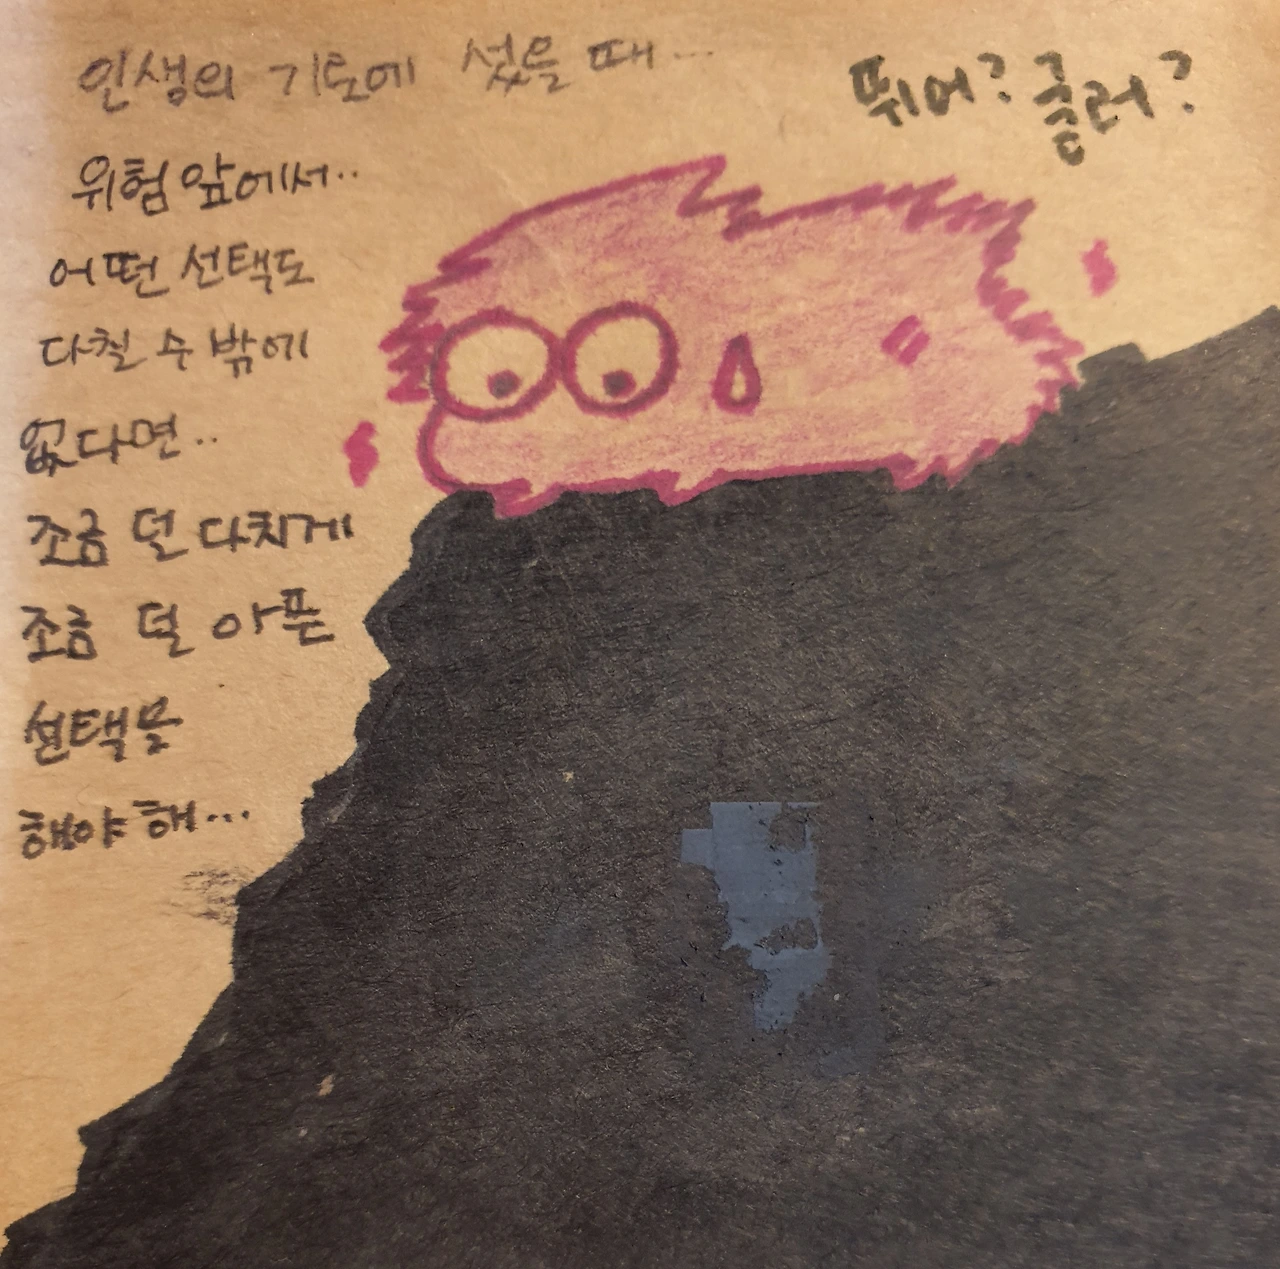 인생의 기로에 섰을 때...
뛰어? 굴러?
위험 앞에서..
어떤 선택도
다칠 수 밖에
없다면..
조금 덜 다치게
조금 덜 아픈
선택을
해야 해...